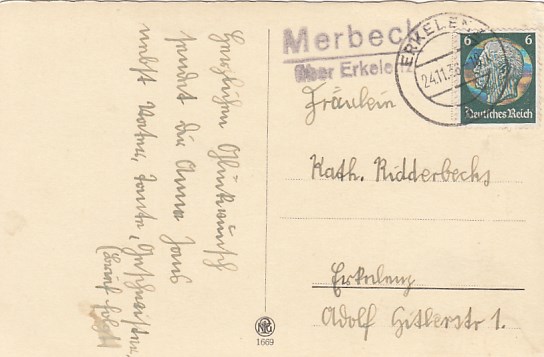 Herzlichen Glückwunsch
sendet dir Anna Jans
nebst Vater, Tante, Geschwister,
(Brief folgt)
Merbeck
über Erkelenz
ERKELENZ
24.11.38
6 6
Deutsches Reich
Fräulein
Kath. Ridderbecks
Erkelenz
Adolf Hitlerstr 1.
1669